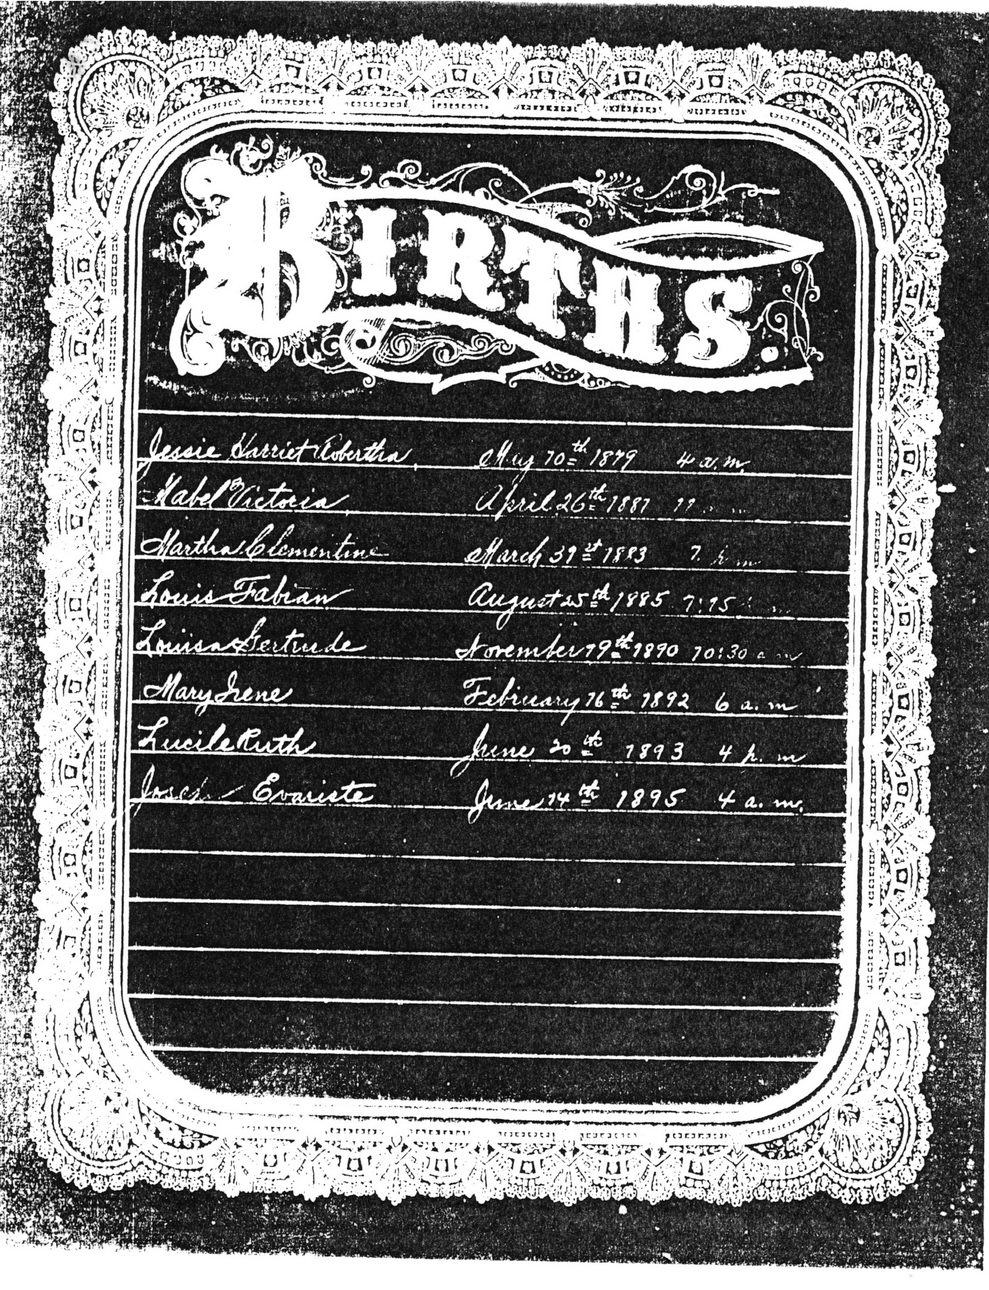 BIRTHS.
Jessie Harriet Robertha May 10th 1879 4 a.m
Mabel Victoria April 26th 1881 11
Martha Clementine March 31st 1883 7. p m
Louis Fabian August 25th 1885 7:15
Louisa Gertrude November 19th 1890 10:30 a m
Mary Irene February 16th 1892 6 a. m
Lucile Ruth June 20th 1893 4 p. m
Joseph Evariste June 14th 1895 4 a. m.